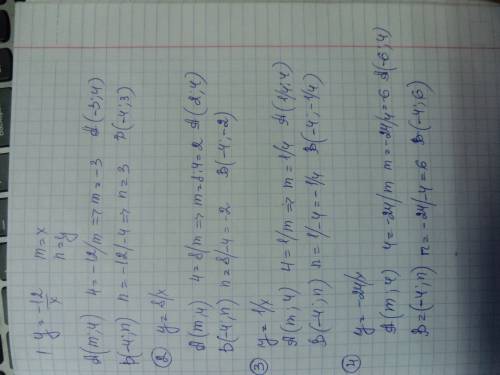 1 y = -12/x   m = x
n = y
A(m;4)   4 = -12/m => m = -3   A(-3;4)
B(-4;n)   n = -12/-4 => n = 3   B(-4;3)
② y = 8/x
A(m;4)   4 = 8/m => m = 8:4 = 2   A(2;4)
B(-4;n)   n = 8/-4 = -2   B(-4;-2)
③ y = 1/x
A(m;4)   4 = 1/m => m = 1/4   A(1/4;4)
B(-4;n)   n = 1/-4 = -1/4   B(-4;-1/4)
④ y = -24/x
A(m;4)   4 = -24/m   m = -24/4 = -6   A(-6;4)
B=(-4;n)   n = -24/-4 = 6   B(-4;6)